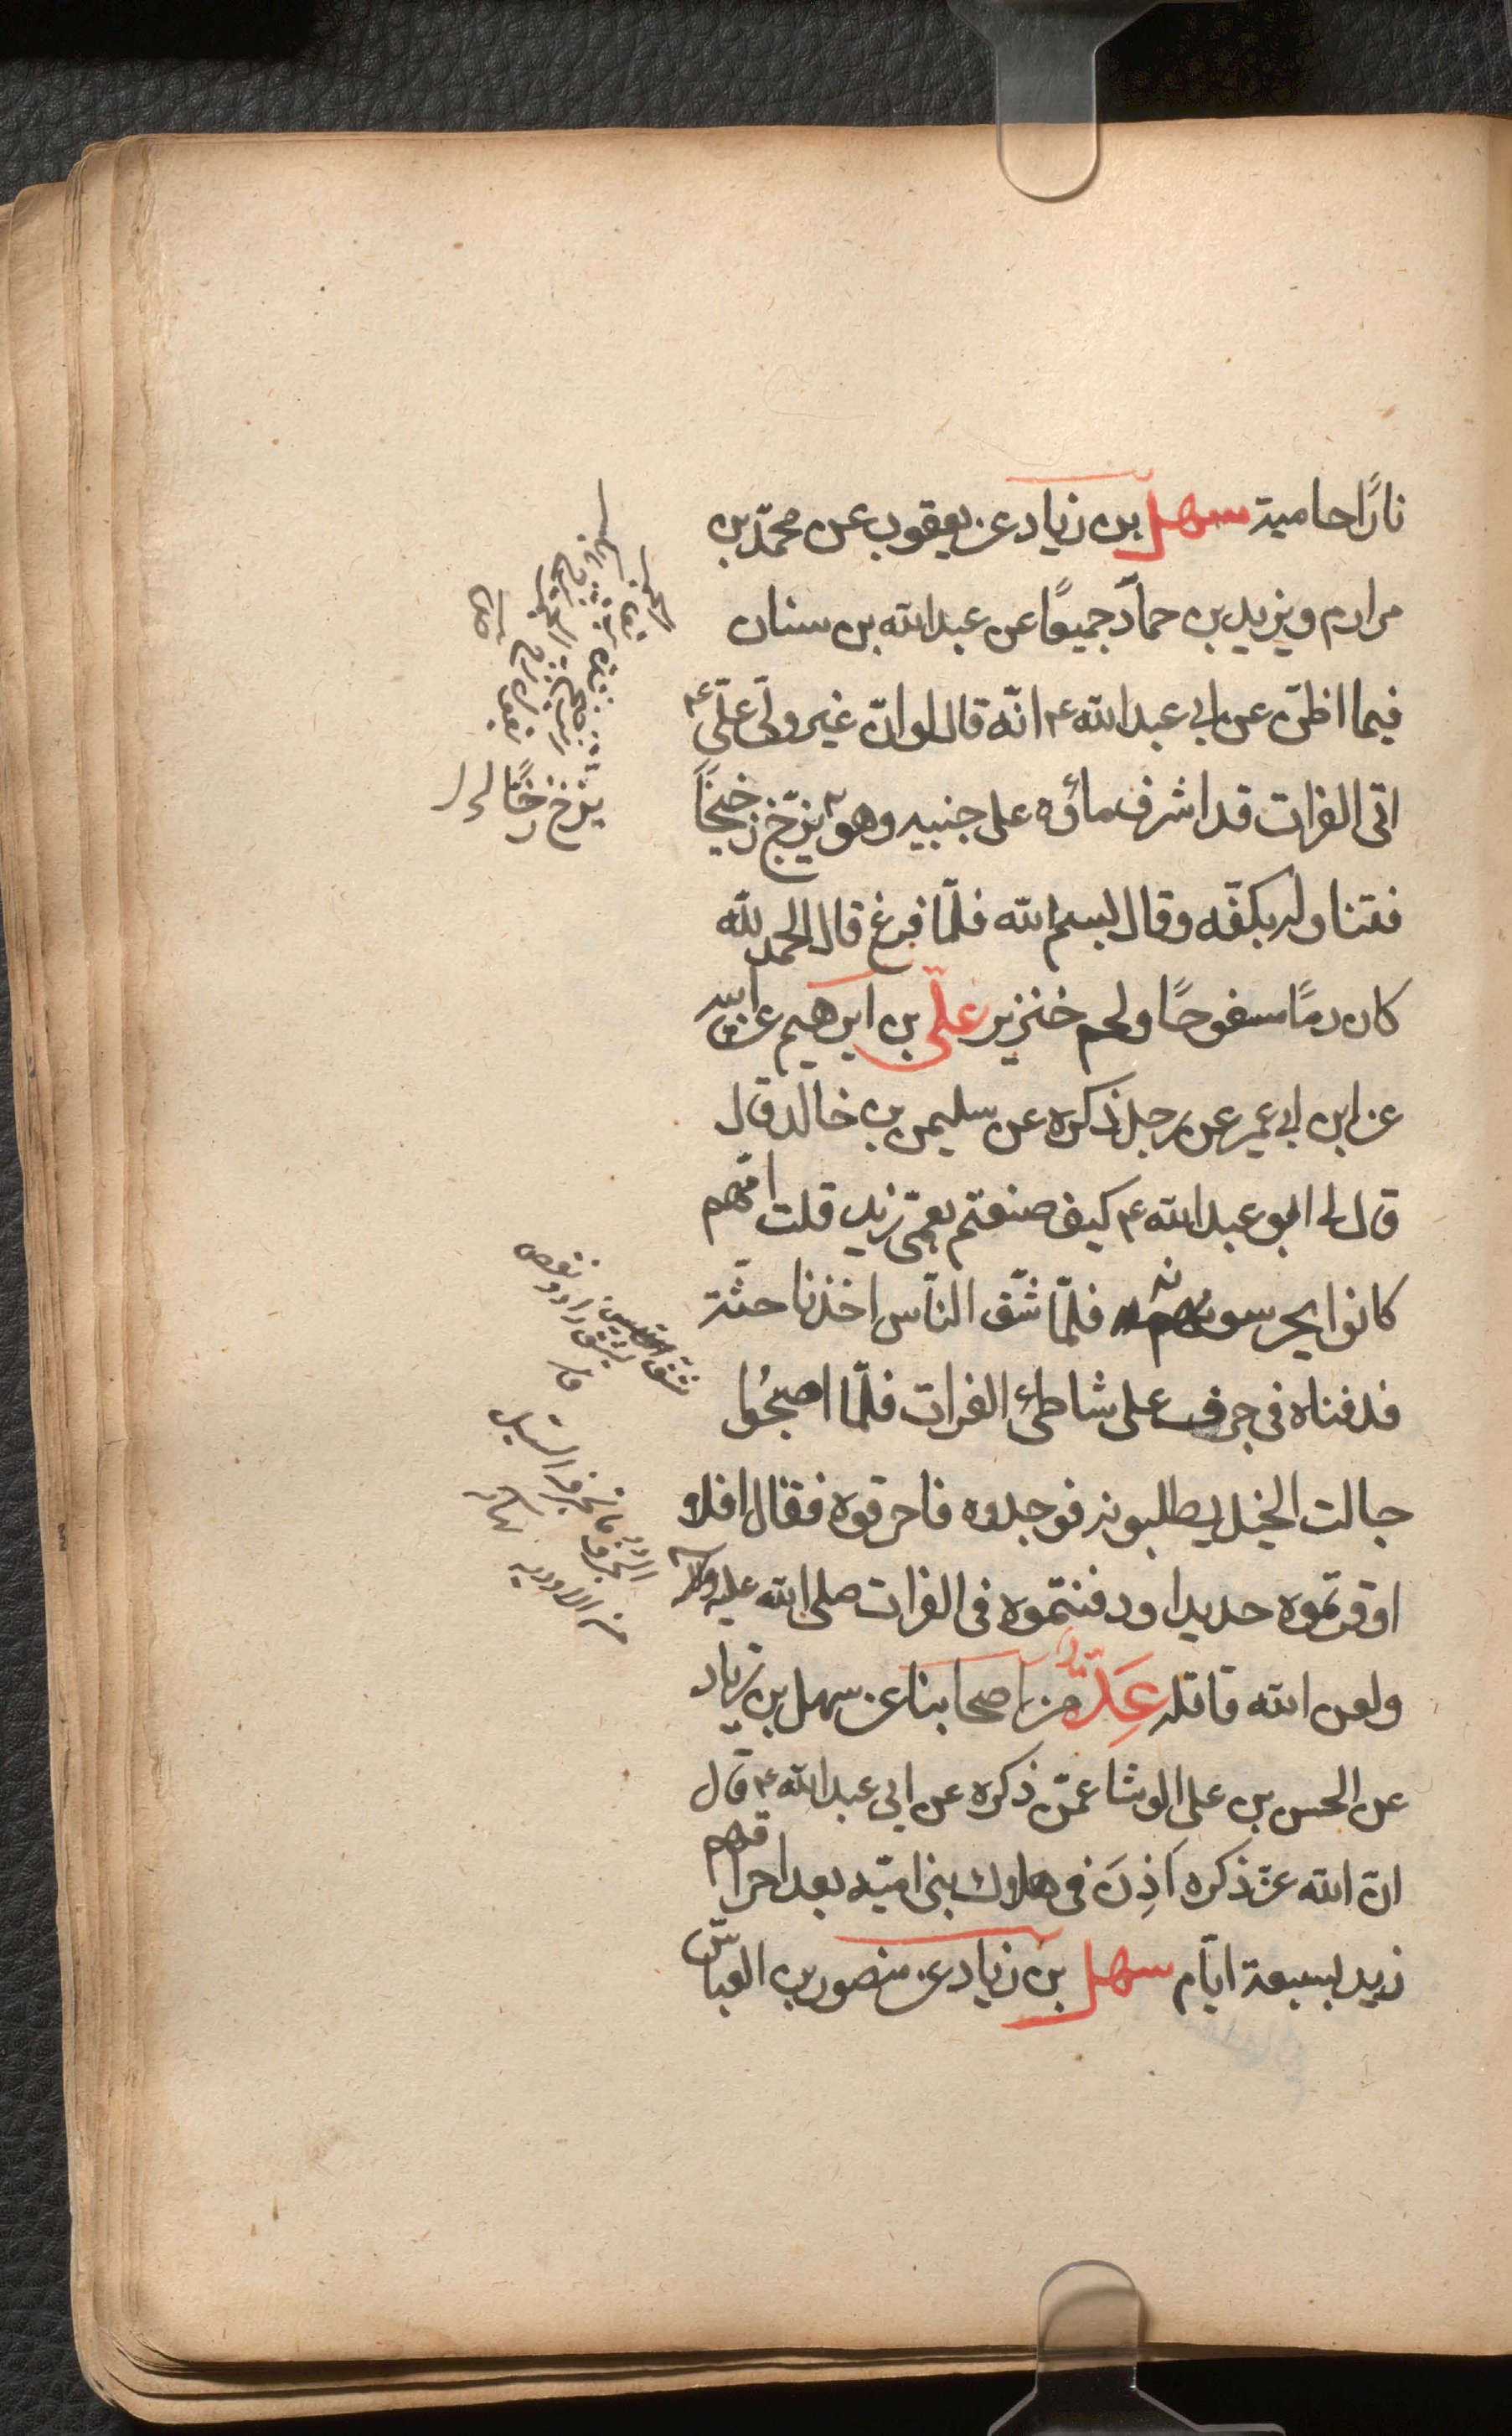 نارًا حامية سهل بن زياد عن يعقوب عن محمّد بن
مرازم ويزيد بن حمّاد جميعًا عن عبد الله بن سنان
فيما اظنّ عن ابي عبد الله ع انّه قال لو انّ غير وليّ عليّ ع
اتى الفرات قد اشرف ماؤه على جنبيه وهو يزخّ زخيخًا
فتناول بكفّه وقال بسم الله فلمّا فرغ قال الحمد لله
كان دمًا مسفوحًا ولحم خنزير علي بن ابرهيم عن ابيه
عن ابن ابي عمير عن رجل ذكره عن سليمن بن خالد قال
قال لي ابو عبد الله ع كيف صنعتم بعمّي زيد قلت انّهم
كانوا يحرسونه فلمّا شفّ النّاس اخذنا جثّة
فدفناه في جرف على شاطئ الفرات فلمّا اصبحُوا
جالت الخيل يطلبونه فوجدوه فاحرقوه فقال افلا
اوقرتموه حديدا ودفنتموه في الفرات صلى الله عليه
ولعن الله قاتله عِدّةٌ من اصحابنا عن سهل بن زياد
عن الحسن بن على الوشا عمّن ذكره عن ابي عبد الله ع قال
انّ الله عزّ ذكره اَذِنَ في هلاك بني اميّة بعد احراقهم
زيد بسبعة ايّام سهل بن زياد عن منصور بن العبّاس
يزخّ زخًّا